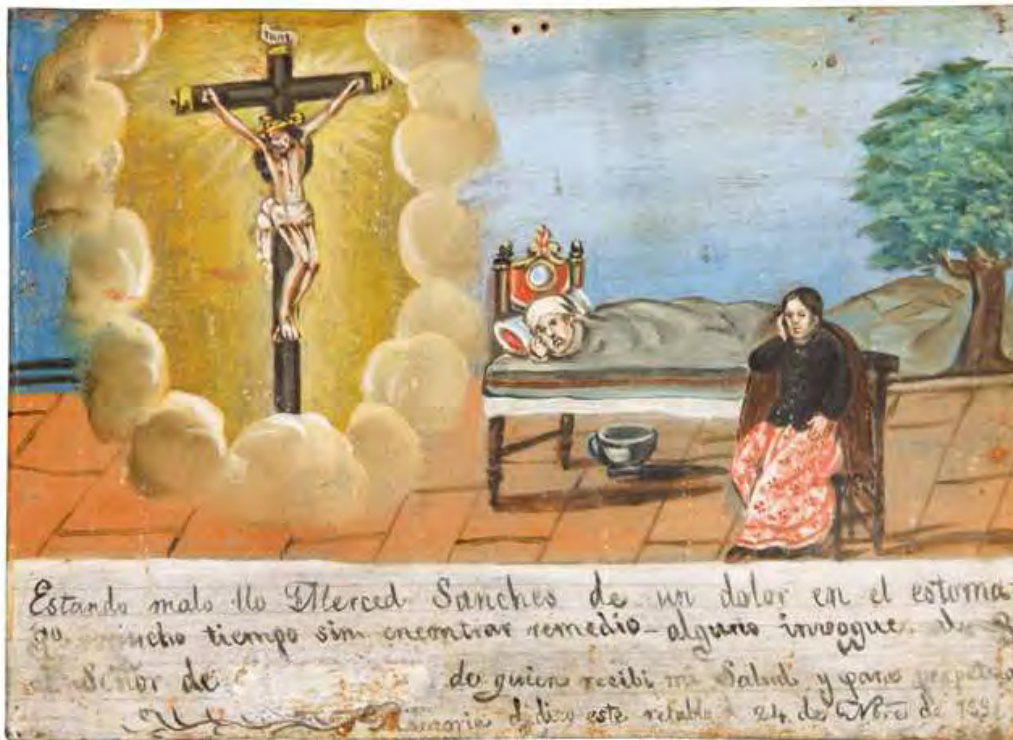 INRI
Estando malo Yo Merced Sanches de un dolor en el estoma
go mucho tiempo sin encontrar remedio alguno invoque
Señor de de quien recibi mi Salud y para perpetua
memoria dedico este retablo 24 de Nbre de